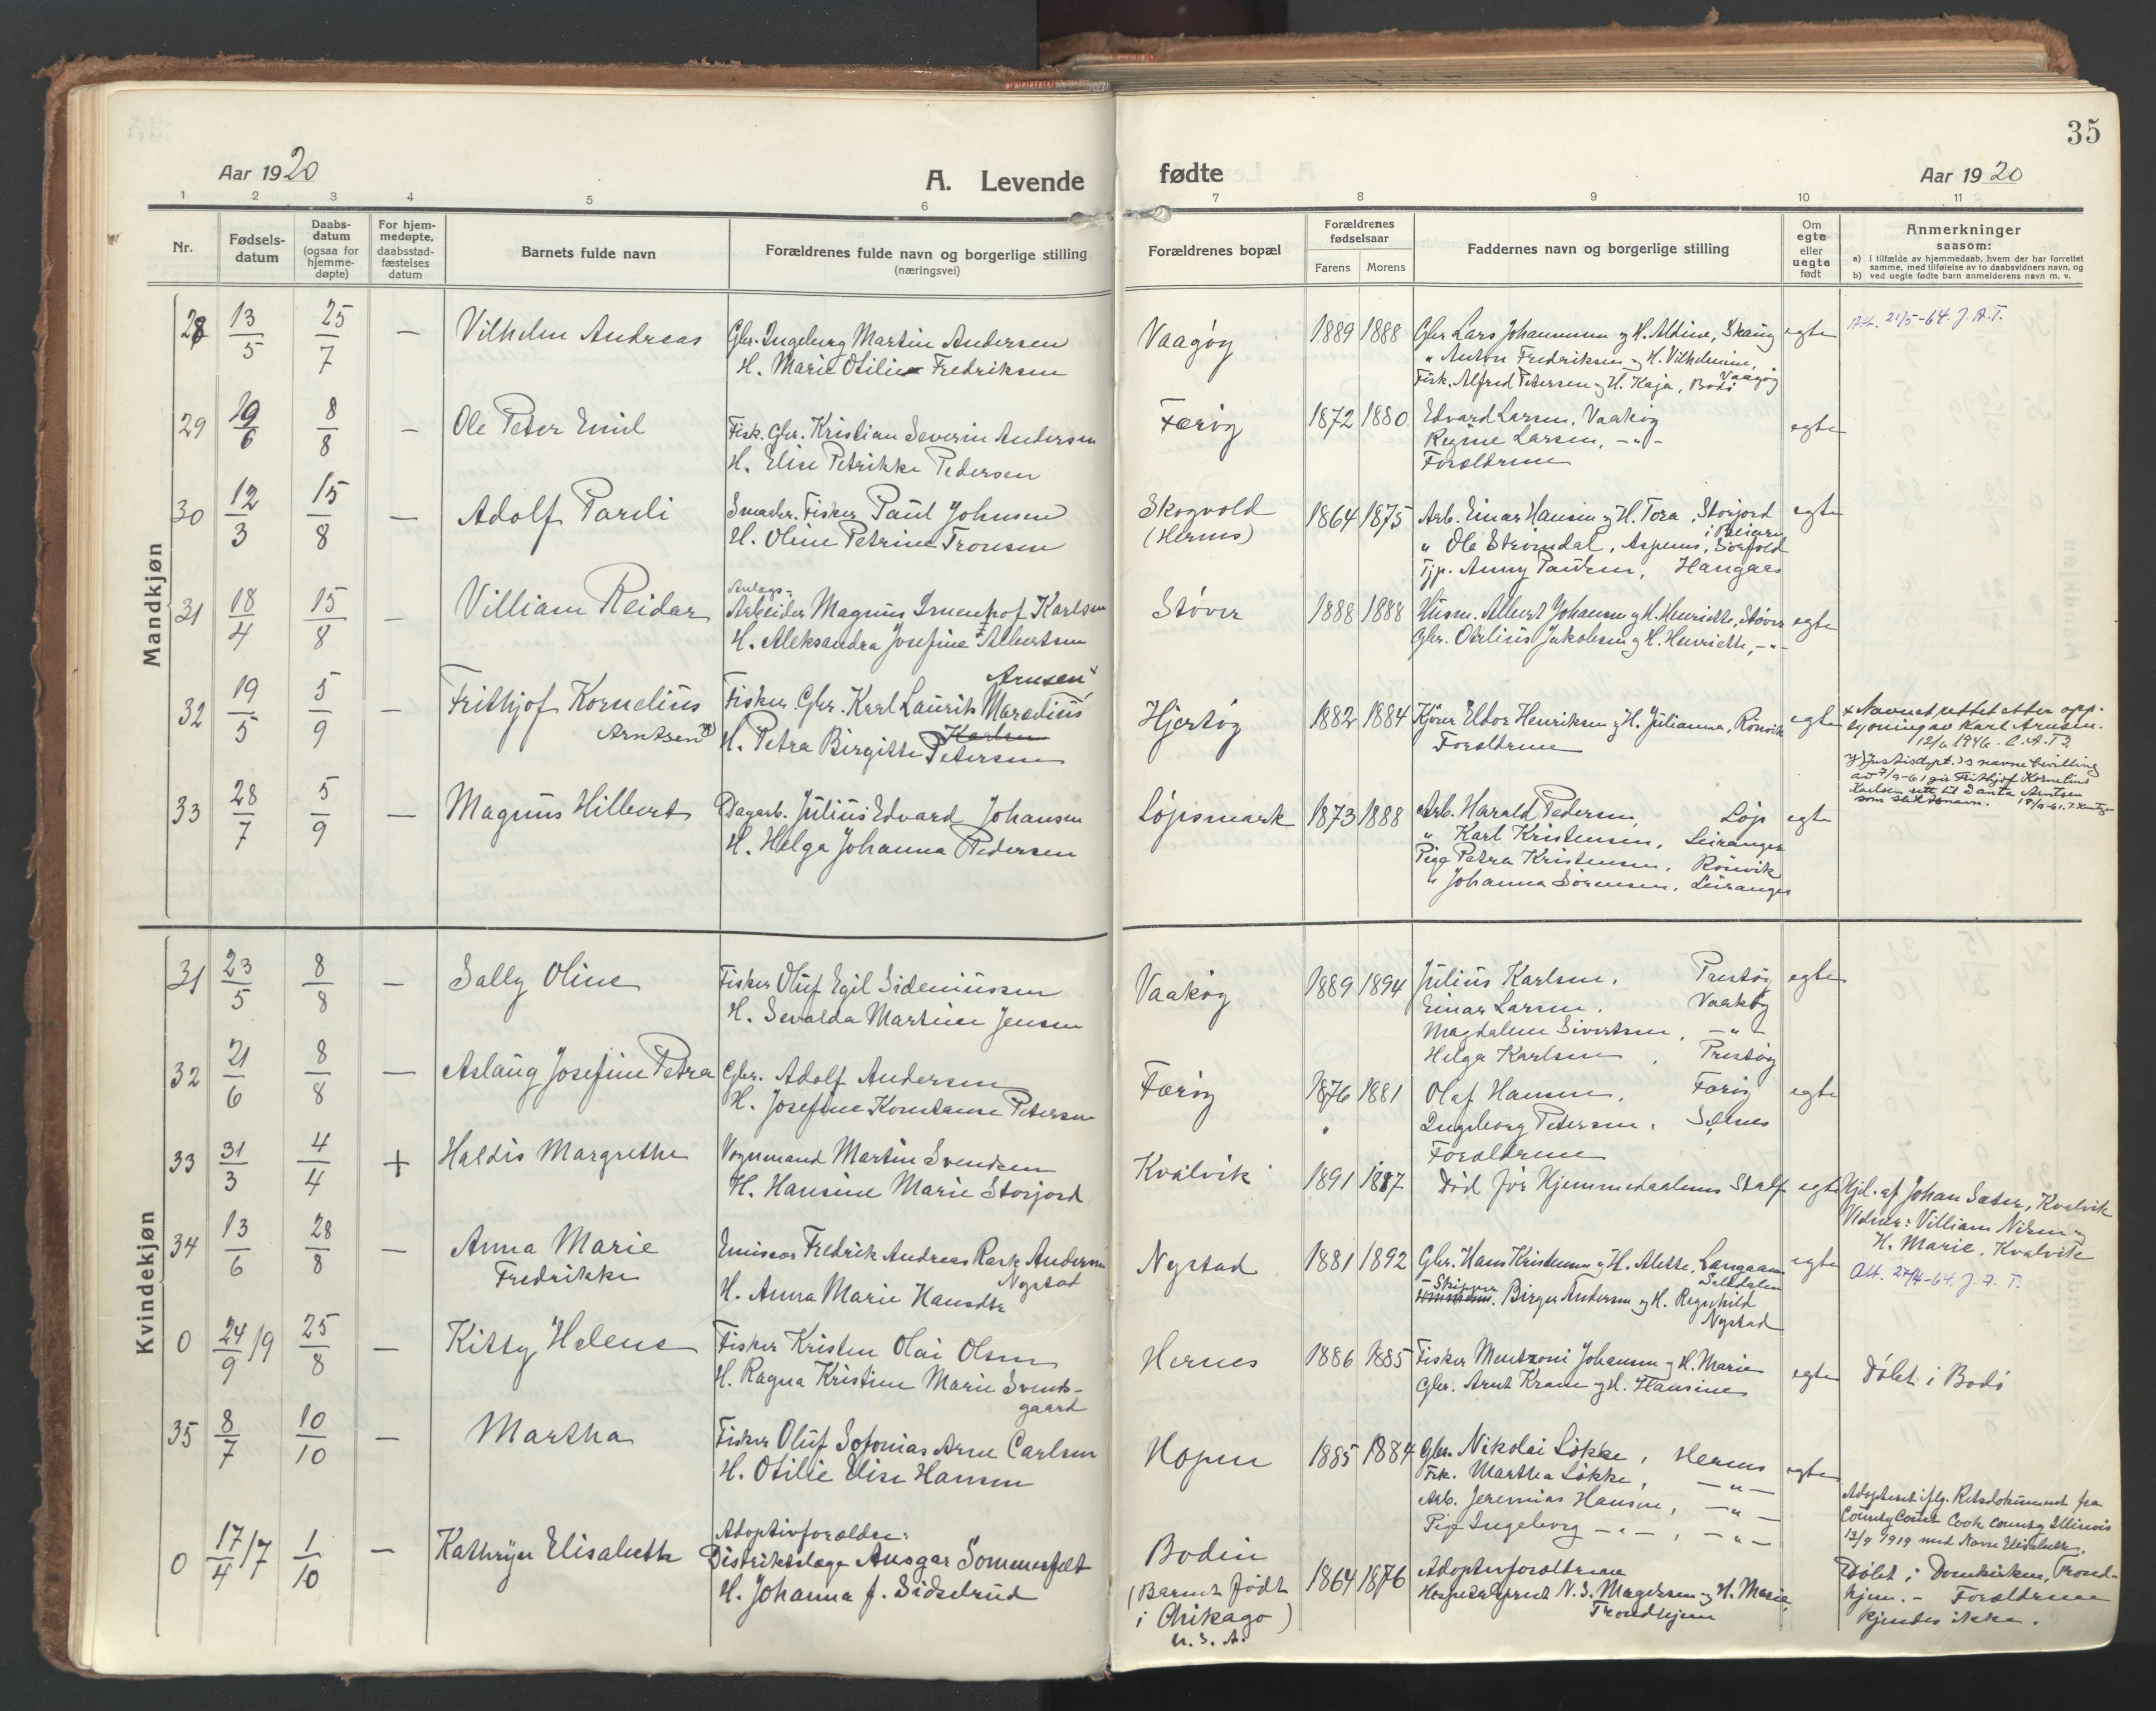 35
Aar 1920
A. Levende
fødte
Aar 1920
1 2 3 4 5 6 7 8 9 10 11
Nr.
Fødsels-
datum
Daabs-
datum
(ogsaa for
hjemme-
døpte)
For hjem-
medøpte,
daabsstad-
fæstelses
datum
Barnets fulde navn
Forældrenes fulde navn og borgerlige stilling
(næringsvei)
Forældrenes bopæl
Forældrenes
fødselsaar
Farens
Morens
Faddernes navn og borgerlige stilling
Om
egte
eller
uegte
født
Anmerkninger
saasom:
a) i tilfælde av hjemmedaab, hvem der har forrettet
samme, med tilføielse av to daabsvidners navn, og
b) ved uegte fødte barn anmelderens navn m. v.
Mandkjøn
28 13/5 25/7 — Vilhelm Andreas
Gbr. Ingeburg Martin Andersen
H. Marie Otilie Fredriksen
Vaagøy 1889 1888
Gbr Lars Johannesen og H. Aldine, Skaug
" Anton Fredriksen og H. Vilhelmine,
Vaagøy
Fisk. Alfred Petersen og H. Kaja, Bodø
egte
Att. 21/5-64. J.A.T.
29 19/6 8/8 — Ole Peter Emil
Fisk. Gbr. Kristian Severin Andersen
H. Elise Petrikke Pedersen
Færøy 1872 1880
Edvard Larsen, Vaakøy
Regine Larsen, -"-
Forældrene
egte
30 12/3 15/8 — Adolf Pareli
Smaabr. Fisker Paul Johnsen
H. Oline Petrine Tronsen
Skogvold
(Hernes)
1864 1875
Arb. Einar Hansen og H. Tora, Storjord
i Beiarn
" Ole Strømdal, Aspenes, Sørfold
Tjp. Anny Paulsen, Hangaas
egte
31 18/4 15/8 — Villiam Reidar
Anlags-
Arbeider Magnus Karlsen
H. Aleksandra Josefine Albertsen
Støver 1888 1888
Husm. Albert Johansen og H. Henriette, Støver
Gbr. Jakobsen og H. Henriette, -"-
egte
32 19/5 5/9 — Frithjof Kornelius
Arntsen
Arnsen x
Fisker Gbr. Karl Laurits Marelius
Karlsen
H. Petra Birgitte Petersen
Hjertøy 1882 1884
Kjører Eldor Henriksen og H. Julianna, Rønvik
Forældrene
egte
x Navnet rettet etter opp-
lysning av Karl Arnsen.
12/6 1946.
y) Justisdept.'s navnebevilling
av 7/9-61 gir Frithjof Kornelius
Karlsen rett til å anta Arntsen
som slektsnavn.
33 28/7 5/9 — Magnus Hilbert
Dagarb. Julius Edvard Johansen
H. Helga Johanna Pedersen
Løpsmark 1873 1888
Arb. Harald Pedersen, Løp
" Karl Kristensen, Leiranger
Pige Petra Kristensen, Rønvik
" Johanna Sørensen, Leiranger
egte
Kvindekjøn
31 23/5 8/8 — Sally Oline
Fisker Oluf Egil Sideniussen
H. Sevalda Martine Jensen
Vaakøy 1889 1894
Julius Karlsen, Prestøy
Einar Larsen, Vaakøy
Magdalene Sivertsen, -"-
Helga Karlsen, Prestøy
egte
32 21/6 8/8 — Aslaug Josefine Petra
Gbr. Adolf Andersen
H. Josefine Konstanse Petersen
Færøy 1876 1881
Olaf Hansen, Færøy
Ingeborg Petersen, Selnes
Forældrene
egte
33 31/3 4/4 + Haldis Margrethe
Vognmand Martin Svendsen
H. Hansine Marie Storjord
Kvalvik 1891 1887
Død før Hjemmedaabens Stadf.
egte
Hjd. af Johan Sæter, Kvalvik
Vidner: Villiam Nilsen og
H. Marie, Kvalvik
34 13/6 28/8 — Anna Marie
Fredrikke
Emissær Fredrik Andreas Rask Andersen
Nystad
H. Anna Marie Hansdtr
Nystad 1881 1892
Gbr. Hans Kristensen og H. Alette, Langaanes
Saltdalen
Skipper
Birger Andersen og H. Regnhild
Nystad
egte
Att. 24/4-64. J. A. T.
0 24/9 19 25/8 — Kitty Helene
Fisker Kristen Olai Olsen
H. Ragna Kristine Marie Svends-
gaard
Hernes 1886 1885
Fisker Mentzoni Johansen og H. Marie
Gbr. Arnt Krane og H. Hansine
egte
Døbt i Bodø
35 8/7 10/10 — Martha
Fisker Oluf Sofonias Arne Carlsen
H. Otilie Elise Hansen
Hopen 1885 1884
Gbr. Nikolai Løkke, Hernes
Frk. Martha Løkke, -"-
Arb. Jeremias Hansen, -"-
Pige Ingeborg -"-, -"-
egte
0 17/4 17 1/10 — Kathryn Elisabeth
Adoptivforældre:
Distriktslæge Ansgar Sommerfelt
H. Johanna f. Sidselrud
Bodin
(Barnet født
i Chikago)
U.S.A.
1864 1876
Adoptivforældrene
Hospitalsprest N. S. Magelssen og H. Marie,
Trondhjem
Adopteret iflg. Retsdokument fra
County Court Cook County Illinois
13/9 1919 med Navn Elisabeth.
Døbt i Domkirken, Trond-
hjem. - Forældrene
kjendes ikke.